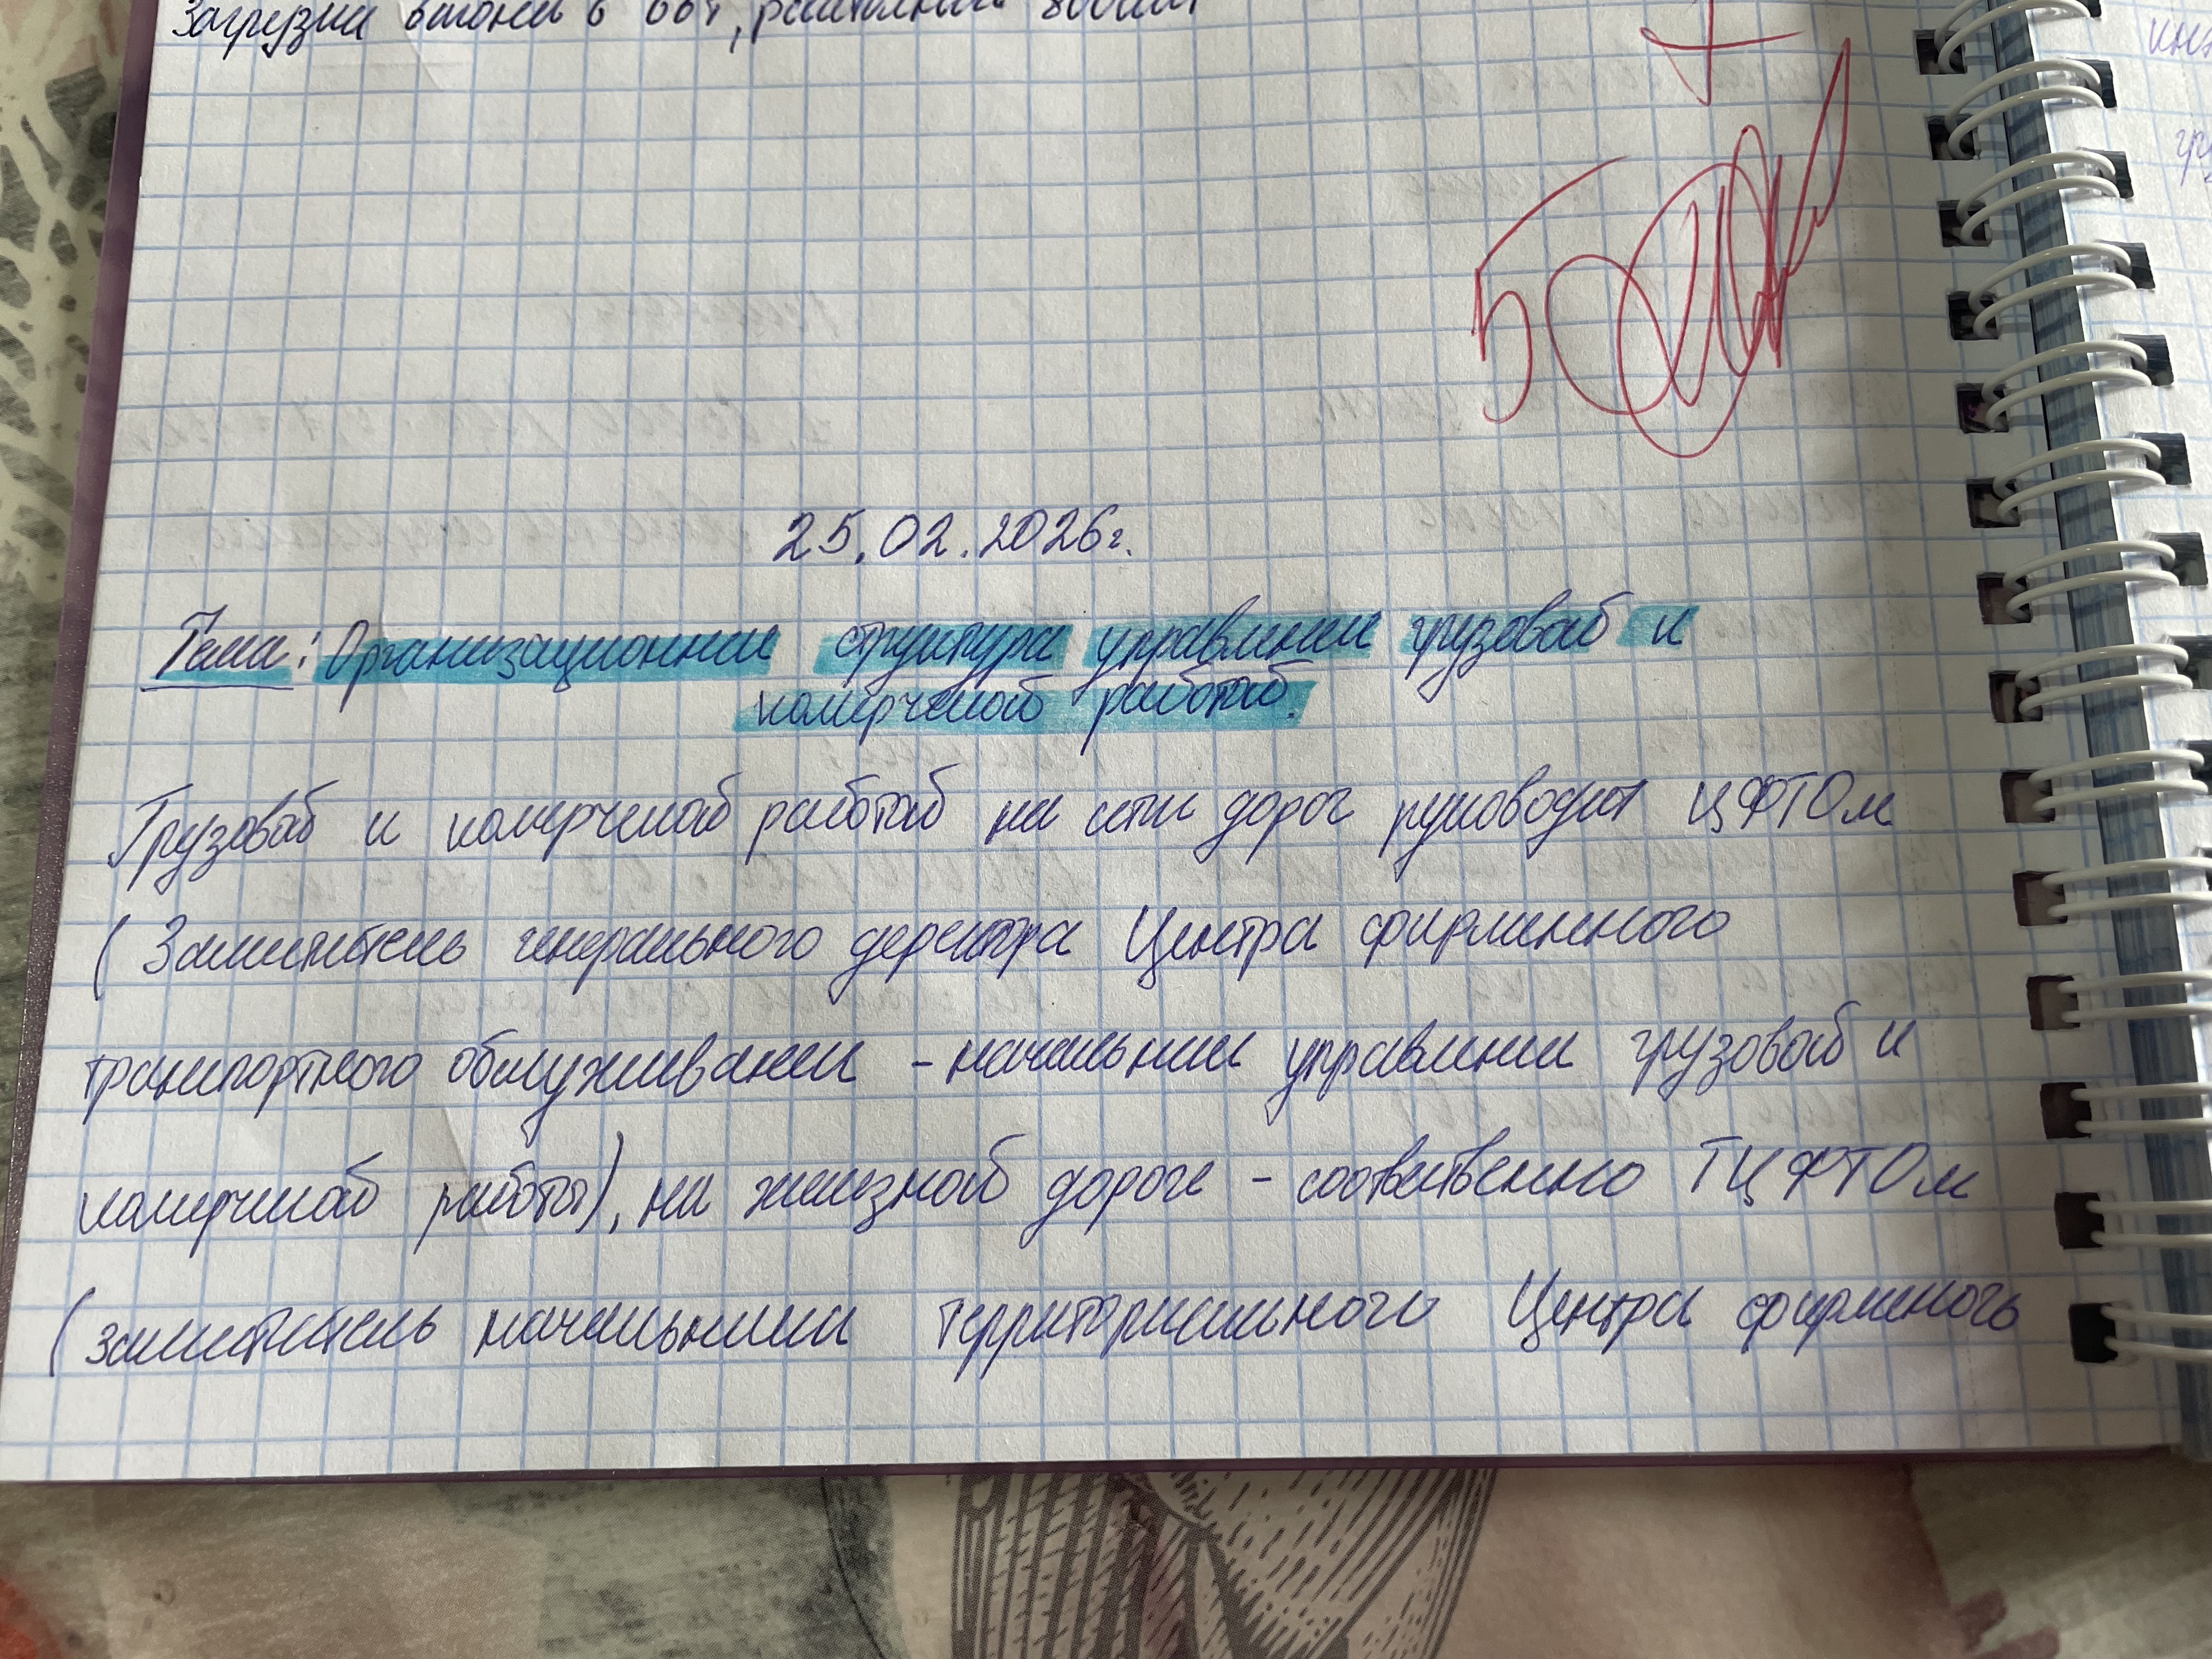 Загрузка вагона в 66т, расстояние
5
25.02.2026г.
Тема: Организационная структура управления грузовой и
коммерческой работой.
Грузовой и коммерческой работой на сети дорог руководит ЦФТОм
(Заместитель генерального деректора Центра фирменного
транспортного обслуживания - начальник управления грузовой и
коммерческой работы), на железной дороге - соответственно ТЦФТОм
(заместитель начальника территориального Центра фирменного